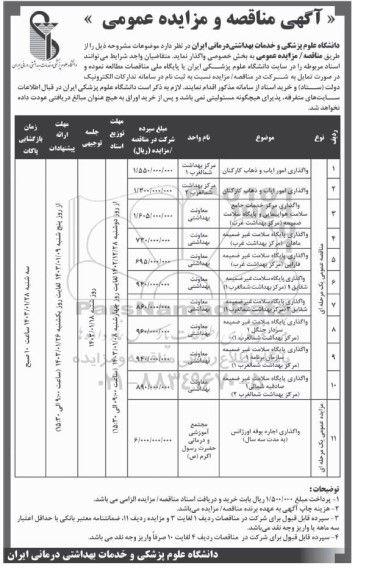 « آگهی مناقصه و مزایده عمومی »
دانشگاه علوم پزشکی و خدمات بهداشتی درمانی ایران در نظر دارد موضوعات مشروحه ذیل را از
طریق مناقصه / مزایده عمومی به بخش خصوصی واگذار نماید. متقاضیان واجد شرایط می‌توانند
اسناد مربوطه را در سایت دانشگاه علوم پزشکی ایران یا پایگاه ملی مناقصات مطالعه نموده و
در صورت تمایل به شرکت در مناقصه / مزایده نسبت به ثبت نام در سامانه تدارکات الکترونیک
دولت (ستاد) و خرید اسناد از سامانه مذکور اقدام نمایند. لازم به ذکر است دانشگاه علوم پزشکی ایران در قبال اطلاعات
سایت‌های متفرقه، پذیرای هیچگونه مسئولیتی نمی باشد و پس از خرید اوراق به هیچ عنوان مبالغ دریافتی عودت داده
نخواهد شد.
ردیف نوع موضوع نام واحد مبلغ سپرده شرکت در مناقصه /مزایده (ریال) مهلت توزیع اسناد جلسه توجیهی مهلت ارائه پیشنهادات زمان بازگشایی پاکات
مناقصه عمومی یک مرحله ای
۱ واگذاری امور ایاب و ذهاب کارکنان مرکز بهداشت شمالغرب ۱ ۱/۵۵۰/۰۰۰/۰۰۰
۲ واگذاری امور ایاب و ذهاب کارکنان مرکز بهداشت شمالغرب ۲ ۱/۳۰۰/۰۰۰/۰۰۰
۳ واگذاری مرکز خدمات جامع سلامت هواپیمایی و پایگاه سلامت ضمیمه (مرکز بهداشت غرب) معاونت بهداشتی ۱/۶۰۵/۰۰۰/۰۰۰
۴ واگذاری پایگاه سلامت غیر ضمیمه ماهان (مرکز بهداشت غرب) معاونت بهداشتی ۷۳۰/۰۰۰/۰۰۰
۵ واگذاری پایگاه سلامت غیر ضمیمه فارابی (مرکز بهداشت غرب) معاونت بهداشتی ۶۹۵/۰۰۰/۰۰۰
۶ واگذاری پایگاه سلامت غیر ضمیمه شقایق ۱ (مرکز بهداشت شمالغرب ۱) معاونت بهداشتی ۹۴۰/۰۰۰/۰۰۰
۷ واگذاری پایگاه سلامت غیر ضمیمه شقایق ۲ (مرکز بهداشت شمالغرب ۱) معاونت بهداشتی ۸۶۰/۰۰۰/۰۰۰
۸ واگذاری پایگاه سلامت غیر ضمیمه سردار جنگل ۱ (مرکز بهداشت شمالغرب ۱) معاونت بهداشتی ۹۶۰/۰۰۰/۰۰۰
۹ واگذاری پایگاه سلامت غیر ضمیمه سازمان برنامه (مرکز بهداشت شمالغرب ۱) معاونت بهداشتی
۱۰ واگذاری پایگاه سلامت غیر ضمیمه صادقیه شمالی (مرکز بهداشت شمالغرب ۲) معاونت بهداشتی ۸۹۰/۰۰۰/۰۰۰
مزایده عمومی یک مرحله ای
۱۱ واگذاری اجاره بوفه اورژانس (به مدت سه سال) مجتمع آموزشی و درمانی حضرت رسول اکرم (ص) ۶/۰۰۰/۰۰۰/۰۰۰
از روز دوشنبه ۱۴۰۲/۱۲/۲۸ لغایت روز چهارشنبه ۱۴۰۳/۰۱/۰۸ (ساعت ۹:۰۰ الی ۱۵:۳۰)
روز شنبه ۱۴۰۳/۰۱/۱۸
از روز پنج شنبه ۱۴۰۳/۰۱/۰۹ لغایت روز یکشنبه ۱۴۰۳/۰۱/۲۶ (ساعت ۹:۰۰ الی ۱۵:۳۰)
سه شنبه ۱۴۰۳/۰۱/۲۸ ساعت ۱۰ صبح
توضیحات :
۱- پرداخت مبلغ ۱/۵۰۰/۰۰۰ ریال بابت خرید و دریافت اسناد مناقصه/ مزایده الزامی می باشد.
۲- هزینه چاپ آگهی به عهده برنده مناقصه/ مزایده می‌باشد.
۳- سپرده قابل قبول برای شرکت در مناقصات ردیف ۱ لغایت ۳ و مزایده ردیف ۱۱، ضمانتنامه معتبر بانکی با حداقل اعتبار
سه ماهه یا واریز وجه نقد می باشد.
۴- سپرده قابل قبول برای شرکت در مناقصات ردیف ۴ لغایت ۱۰ صرفاً واریز وجه نقد می باشد.
دانشگاه علوم پزشکی و خدمات بهداشتی درمانی ایران